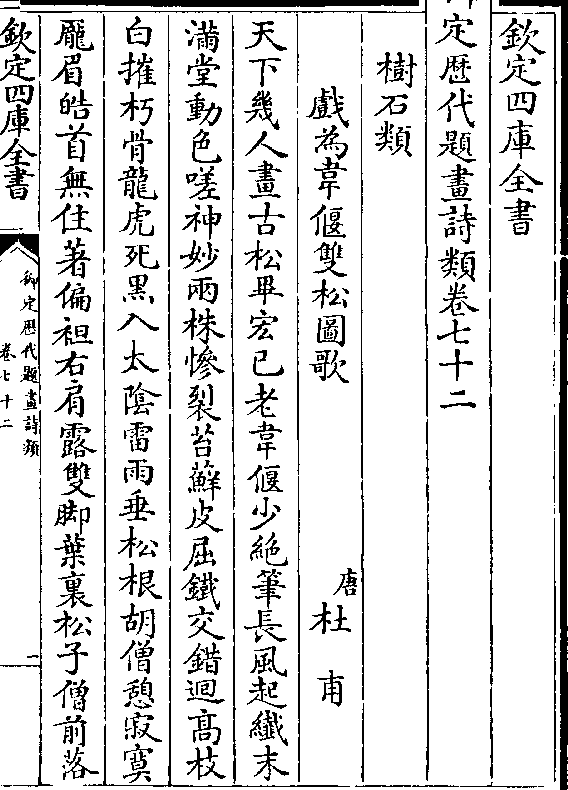 欽定四庫全書
定歴代題畫詩類卷七十二
樹石類
戲為韋偃雙松圖歌
唐杜甫
天下幾人畫古松畢宏已老韋偃少絶筆長風起纖末
滿堂動色嗟神妙兩株慘裂苔蘚皮屈鐵交錯迴髙枝
白摧朽骨龍虎死黒入太陰雷雨垂松根胡僧憩寂寞
龎眉皓首無住著偏袒右肩露雙脚葉裏松子僧前落
欽定四庫全書
御定歴代題畫詩類
卷七十二
一